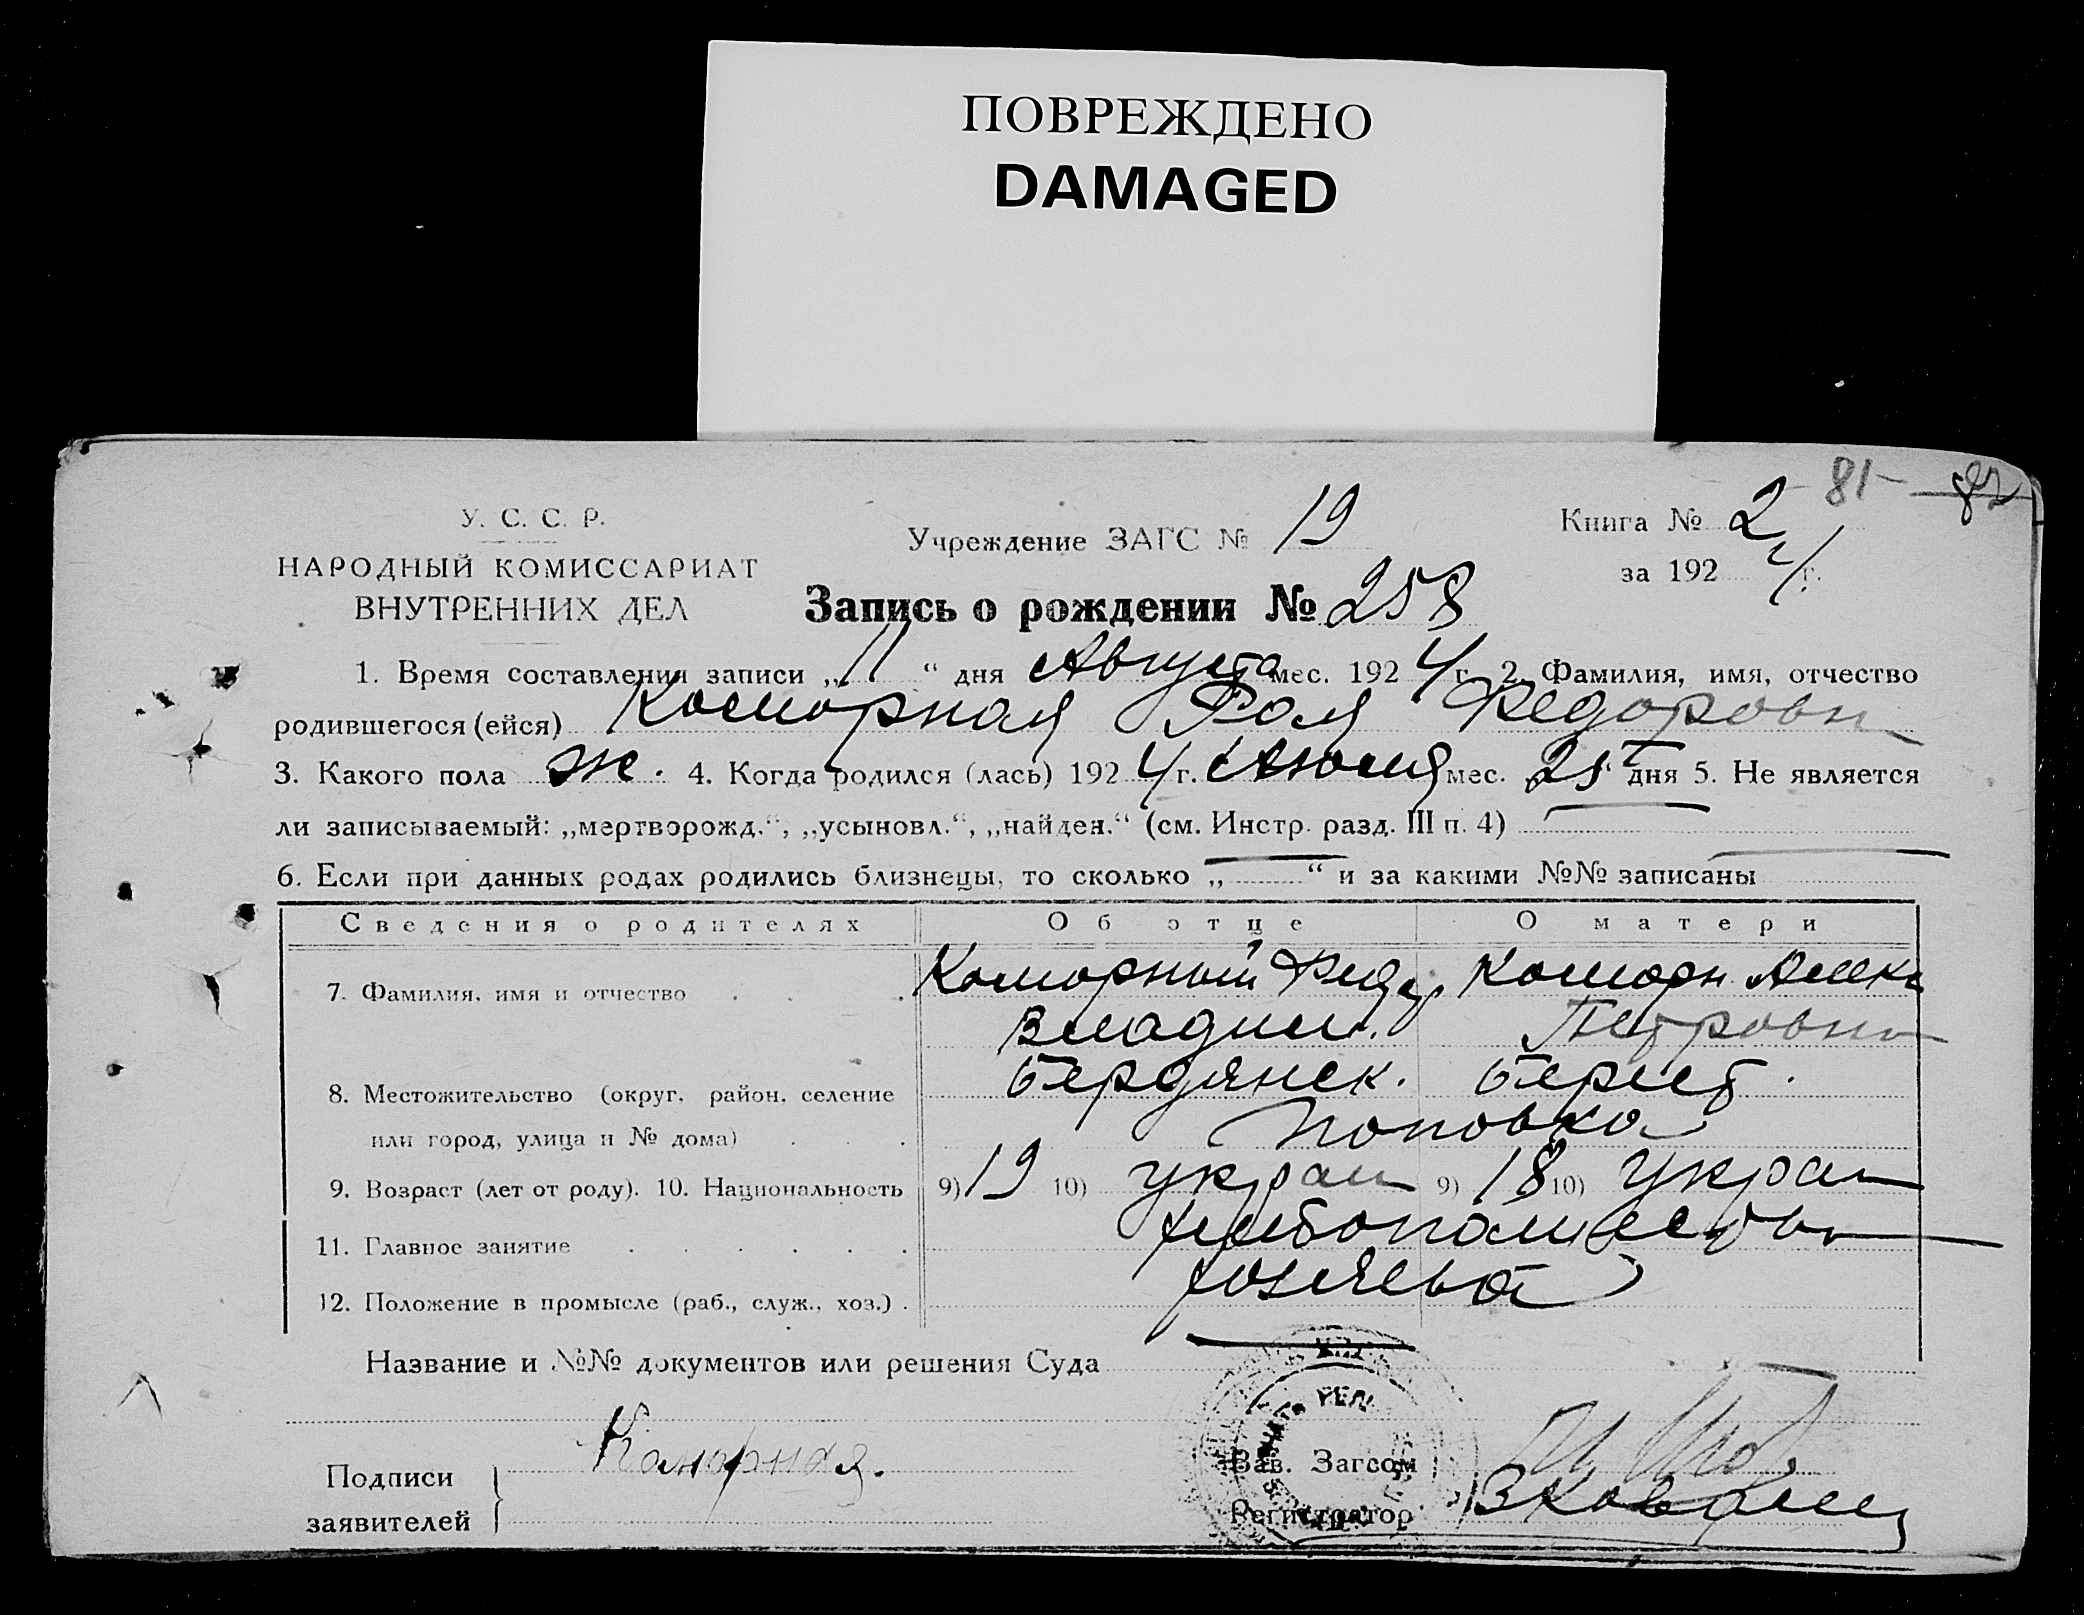 ПОВРЕЖДЕНО
DAMAGED
81
82
У. С. С. Р.
НАРОДНЫЙ КОМИССАРИАТ
ВНУТРЕННИХ ДЕЛ
Учреждение ЗАГС № 19
Книга № 2
за 192 4 г.
Запись о рождении № 258
1. Время составления записи „ 11 “ дня Августа мес. 192 4 г. 2. Фамилия, имя, отчество
родившегося (ейся) Коморная Рая Федоровн
3. Какого пола ж. 4. Когда родился (лась) 192 4 г. Июля мес. „ 25 “ дня 5. Не является
ли записываемый: „мертворожд.“, „усыновл.“, „найден.“ (см. Инстр. разд. III п. 4)
6. Если при данных родах родились близнецы, то сколько „ — “ и за какими №№ записаны —
Сведения о родителях Об отце О матери
7. Фамилия, имя и отчество . . . Коморный Федор Коморн
Владим. Петровна
8. Местожительство (округ, район, селение Бердянск.
или город, улица и № дома) . . . Поповка
9. Возраст (лет от роду). 10. Национальность 9) 19 10) украи 9) 18 10) украи
11. Главное занятие . . . . . . хлебопашество
12. Положение в промысле (раб., служ., хоз.) . хозяева
Название и №№ документов или решения Суда
Подписи
заявителей
Коморная.
Зав. Загсом
Регистратор